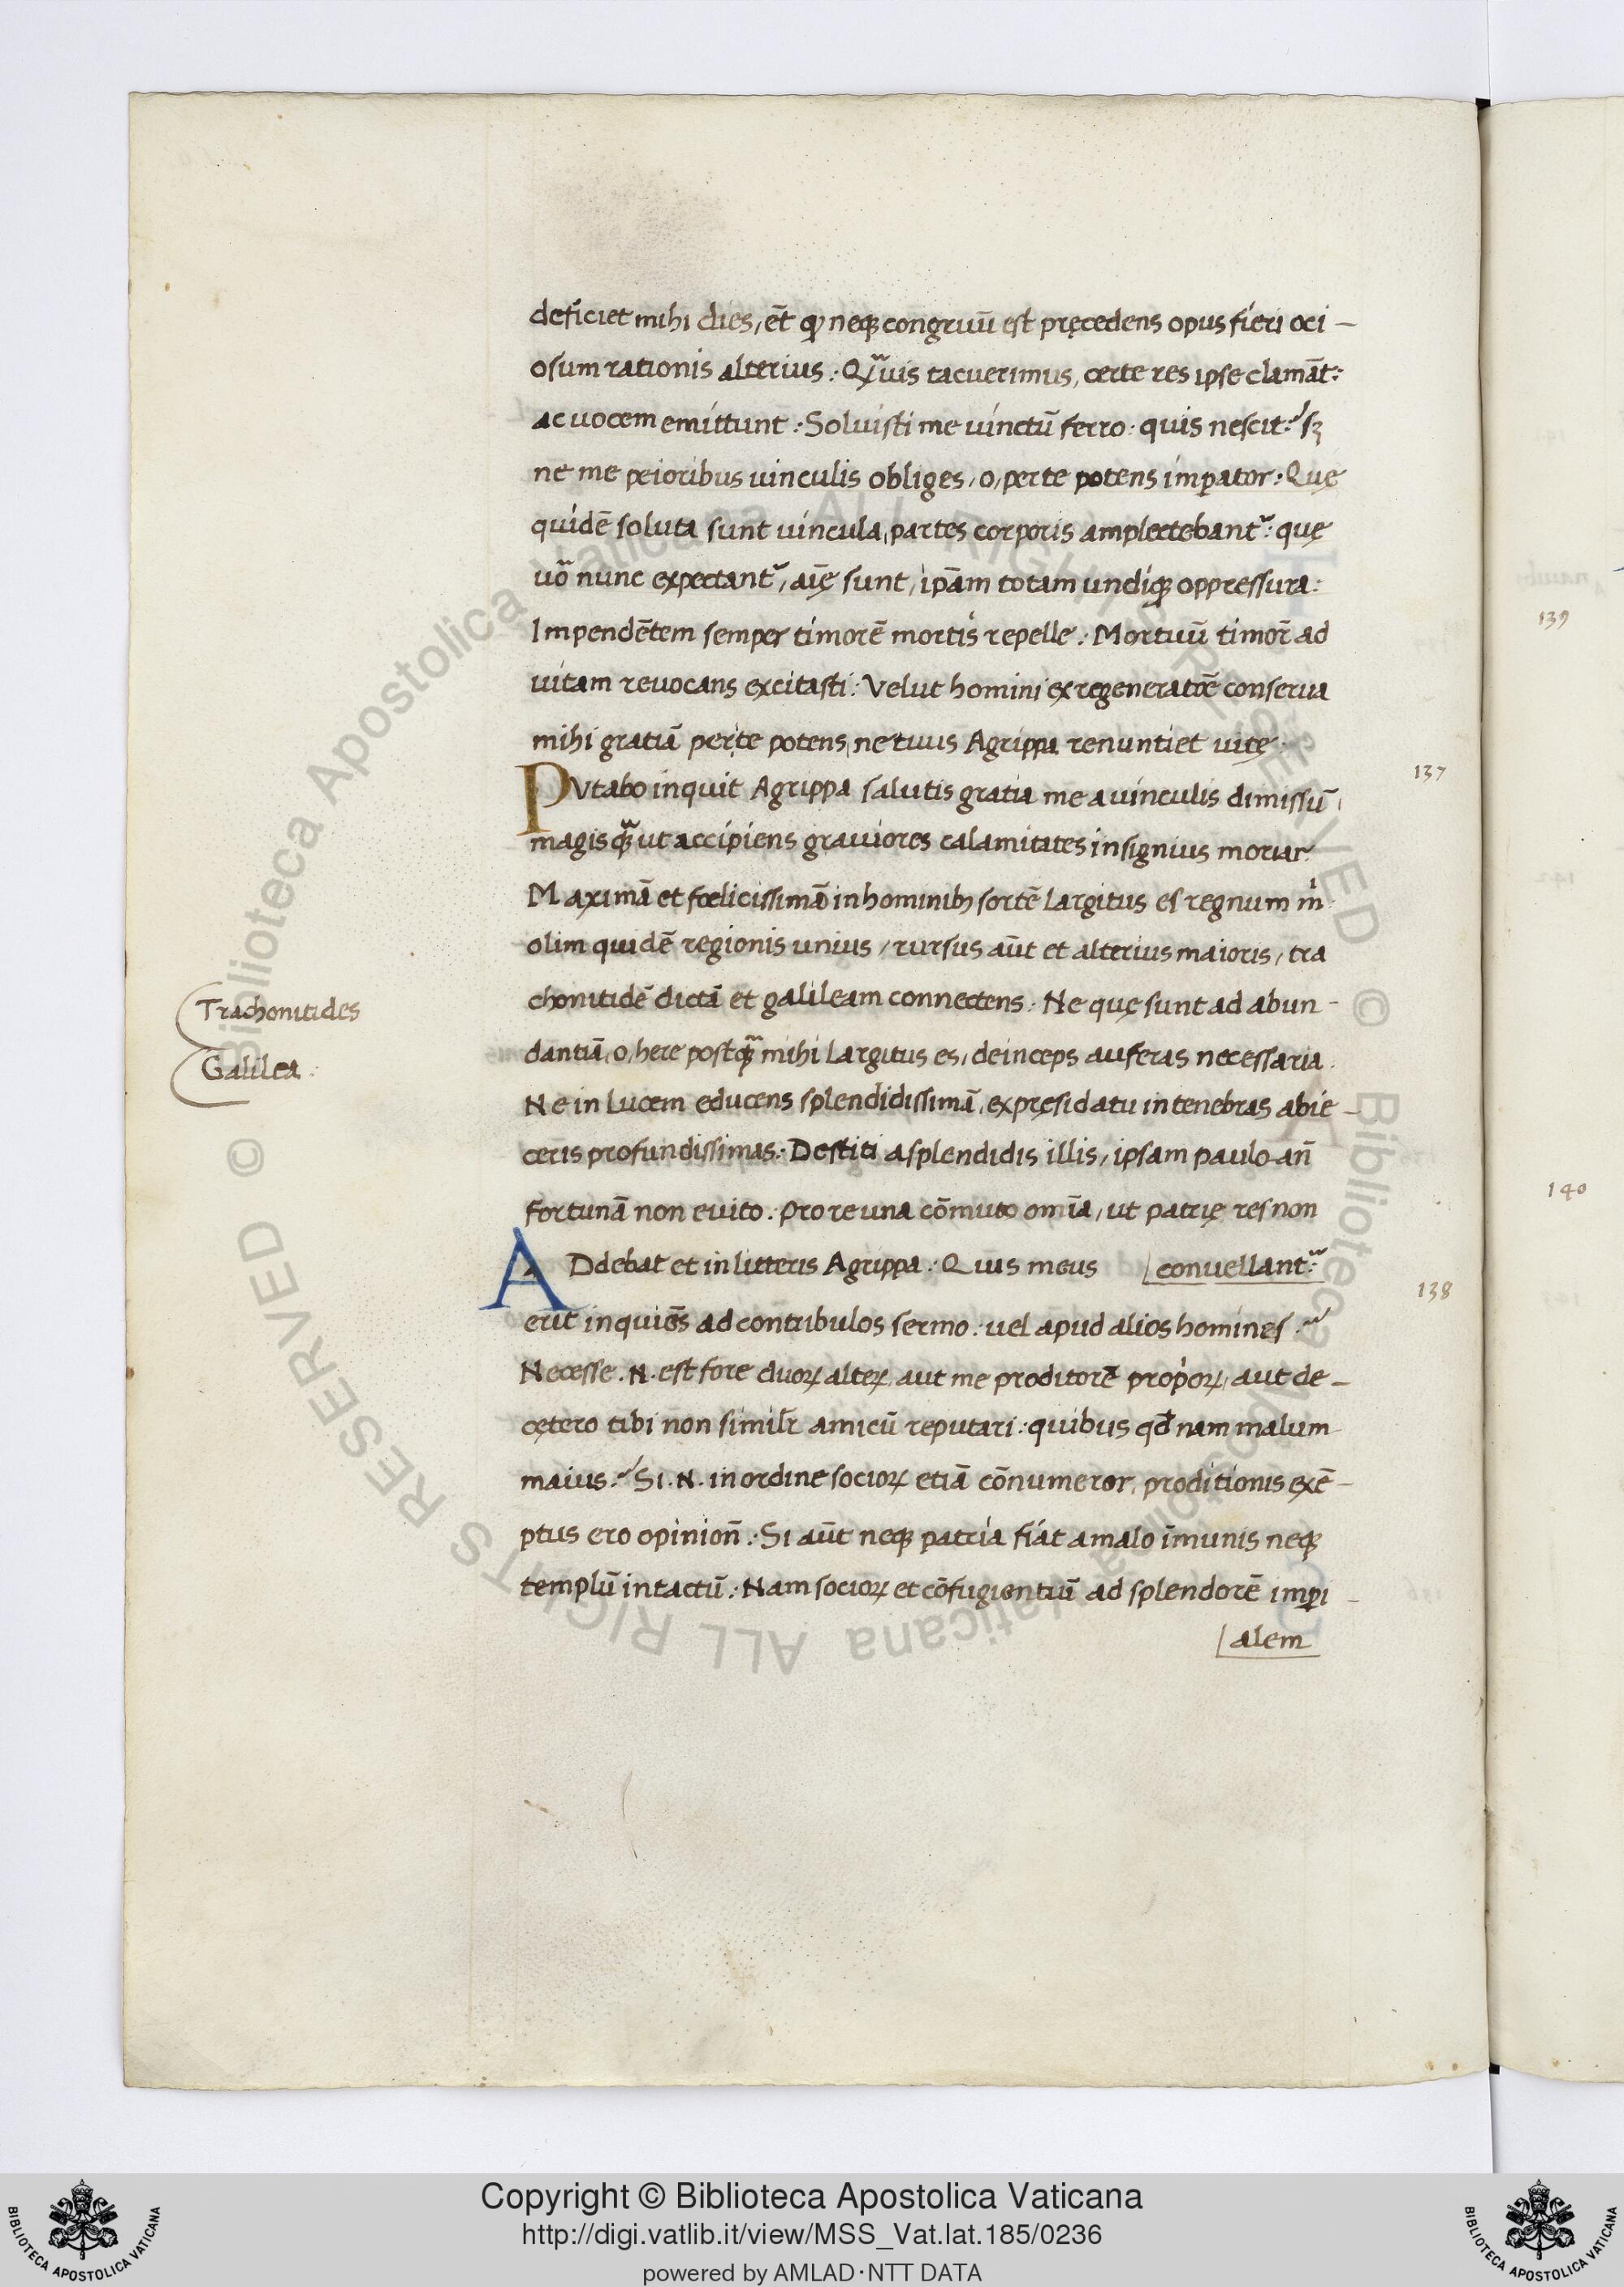 deficiet mihi dies, et̄ qͥ neqꝫ congruū est pręcedens opus fieri oci-
osum rationis alterius: Qͣuis tacuerimus, certe res ipse clamāt:
ac uocem emittunt: Soluisti me uinctū ferro: quis nescit? sꝫ
ne me peioribus uinculis obliges, o, per te potens imꝑator: Quę
quidē soluta sunt uincula, partes corporis amplectebantᷣ: quę
uō nunc expectantᷣ, aīę sunt, ip̄am totam undiqꝫ oppressura:
Impendētem semper timorē mortis repelle: Mortuū timor̄ ad
uitam reuocans excitasti: Velut homini ex regeneratōe conserua
mihi gratiā per te potens, ne tuus Agrippa renuntiet uitę.
PVtabo inquit Agrippa salutis gratia me a uinculis dimissū,
magis qꝫͣ ut accipiens grauiores calamitates insignius moriar?
Maximā et fœlicissimā in hominibꝫ sortē largitus es regnum m̊.
olim quidē regionis unius, rursus aūt et alterius maioris, tra
chonitidē dictā et galileam connectens. Ne quę sunt ad abun-
dantiā, o, here postqꝫͣ mihi largitus es, deinceps auferas necessaria.
Ne in lucem educens splendidissimā, ex pręsidatu in tenebras abie-
ceris profundissimas: Destiti a splendidis illis, ipsam paulo an̄
fortunā non euito. pro re una cōmuto om̄ia, ut patrię res non
ADdebat et in litteris Agrippa: Quis meus
convellantᷣ:
erit inquiēs ad contribulos sermo: uel apud alios homines?
Necesse .N. est fore duoꝝ alteꝝ, aut me proditorē proṗoꝝ, aut de-
cętero tibi non simil̄r amicū reputari: quibus qd̄ nam malum
maius? Si .N. in ordine socioꝝ etiā cōnumeror, proditionis exē-
ptus ero opinion̄: Si aūt neqꝫ patria fiat a malo īmunis neqꝫ
templū intactū: Nam socioꝝ et cōfugientiū ad splendorē imꝑi-
alem
Trachonitides
Galilea.
137
138
139
140
Copyright © Biblioteca Apostolica Vaticana
http://digi.vatlib.it/view/MSS_Vat.lat.185/0236
powered by AMLAD·NTT DATA
BIBLIOTECA APOSTOLICA VATICANA
BIBLIOTECA APOSTOLICA VATICANA
© Biblioteca Apostolica Vaticana ALL RIGHTS RESERVED
© Biblioteca Apostolica Vaticana ALL RIGHTS RESERVED